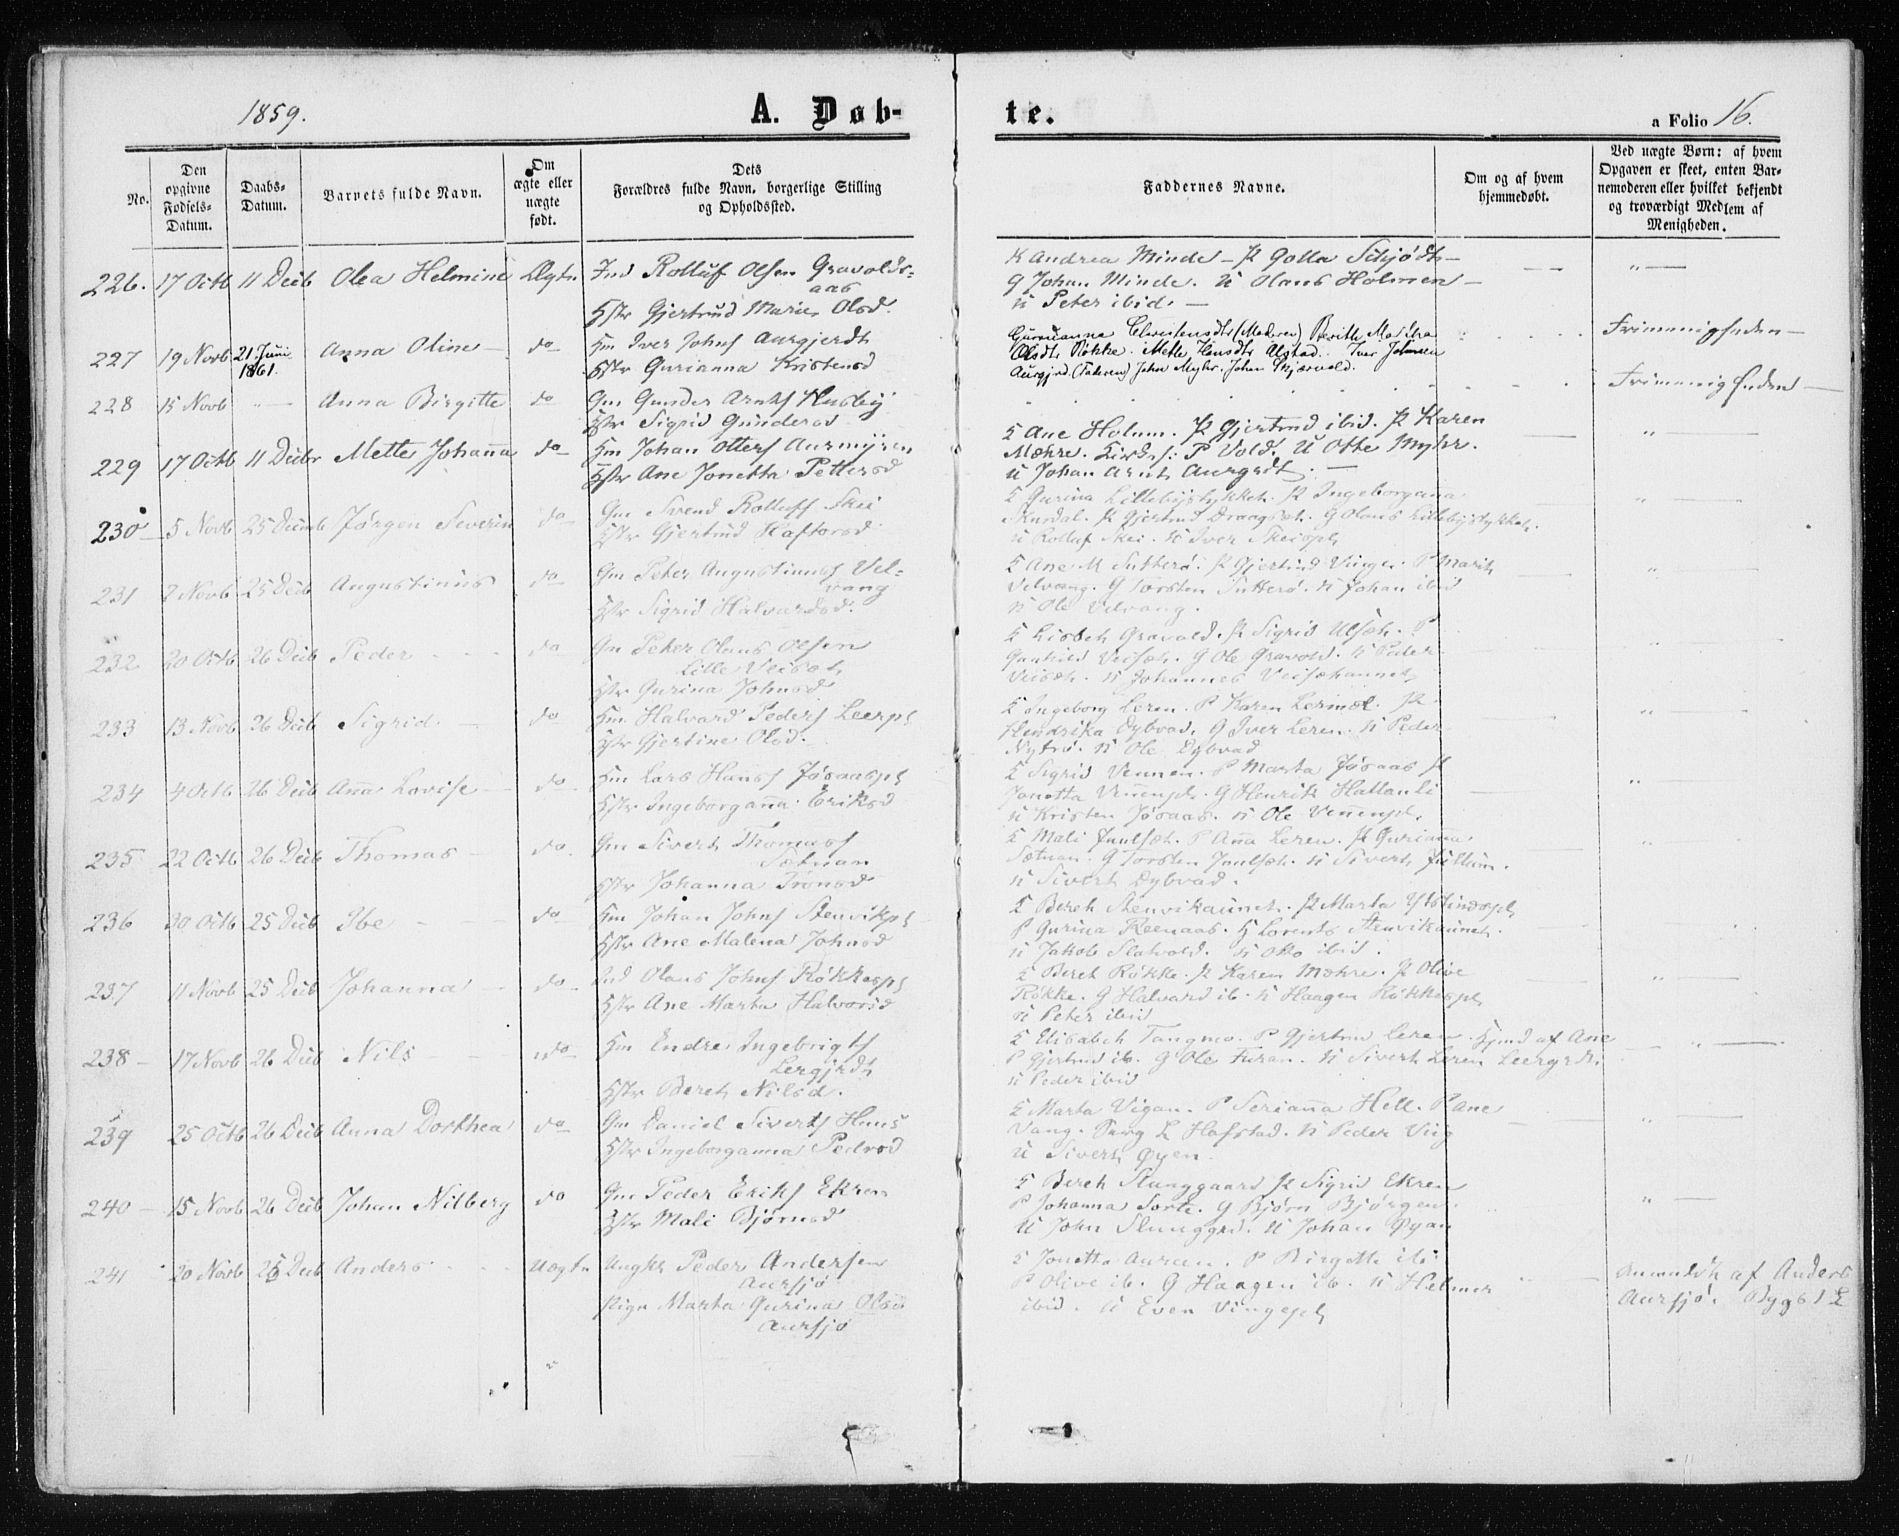 1859.
A. Døb-
te.
a Folio 16.
No.
Den
opgivne
Fødsels-
Datum.
Daabs-
Datum.
Barnets fulde Navn.
Om
ægte eller
uægte
født.
Dets
Forældres fulde Navn, borgerlige Stilling
og Opholdssted.
Faddernes Navne.
Om og af hvem
hjemmedøbt.
Ved uægte Børn: af hvem
Opgaven er skeet, enten Bar-
nemoderen eller hvilket bekjendt
og troværdigt Medlem af
Menigheden.
226. 17 Octb 11 Decb Olea Helmine Ægte Ind Rolluf Olsen Gravolds-
aas
Hstr Gjertrud Marie Olsd.
K Andrea Minde - P Golla Schjødt -
G Johan Minde. U Olaus Holmen -
U Peter ibid. -
227 19 Novb 21 Juni Anna Oline - do Hm Iver Johns Aurgjerdt
1861.
Hstr Gurianna Kristensd
(Moderen) Berith Mar
Olsdt Røkke. Mette Jensdt Alstad. Iver Johnsen
Aurgjrd. (Faderen) John Myhr. Johan
Frimenigheden -
228 15 Novb - Anna Birgitte do Gm Gunder Arnts Husby
Hstr Sigrid Gundersd
Frimenigheden -
229 17 Octb 11 Decbr Mette Johanna do Hm Johan Otters Aurmyren
Hstr Ane Jonetta Pettersd
K Ane Holum. P Gjertrud ibid. P Karen
Mæhre. P Vold. U Otte Myhr.
U Johan Arnt Aurgrdt. -
230 5 Novb 25 Decmb Jørgen Severin do Gm Svend Rollufs Skei
Hstr Gjertrud Haftorsd
K Gurina Lillebystykket. P Ingeborgana
Mursdal. P Gjertrud Draagset. G Olaus Lillebystykket.
U Rolluf Skei. U Iver Skeispl
231 2 Novb 25 Decb Augustinus do Gm Peter Augustinuss Vel-
vang
Hstr Sigrid Halvardsd.
K Ane M Sutterø. P Gjertrud Vinge. P Marit
Velvang. G Torsten Sutterø. U Johan ibid
U Ole Velvang.
232 20 Octb 26 Decb Peder do Gm Peter Olaus Olsen
Lille Veiset
Hstr Gurina Johnsd
K Lisbet Gravold. P Sigrid Ulset. P
Gunhild Veiset. G Ole Gravold. U Peder
Veiset. U Johannes Veisethaunet
233 13 Novb 26 Decb Sigrid. do Hm Halvard Peders Leerpl
Hstr Gjertine Olsd.
K Ingeborg Leren. P Karen Lermæl. P
Hendrika Dybvad. G Iver Leren. U Peder
Nytrø. U Ole Dybvad
234 4 Octb 26 Decb Anna Lovise do Hm Lars Hans Jøsaaspl
Hstr Ingeborganna Eriksd
K Sigrid Vennen. P Marta Jøsaas P
Jonetta Vennenpl. G Henrik Hallanli
U Kristen Jøsaas. U Ole Vennenpl.
235 22 Octb 26 Decb Thomas do. Gm Sivert Thomass
Sætnan
Hstr Johanna Tronsd
K Mali Juulset. P Anna Leren. P Gurianna
Sætnan. G Torsten Juulset. U Sivert Fuktum.
U Sivert Dybvad.
236 30 Octb 25 Decb Ibe do Hm Johan Johns Stenvikpl
Hstr Ane Malena Johnsd
K Beret Stenvikaunet. P Marta Ystinespl
P Gurina Reenaas. G Lorents Stenvikaunet.
U Jakob Slatvold. U Otto ibid.
237 11 Novb 25 Decb Johanna do Ind Olaus Johns Røkkespl
Hstr Ane Marta Halvorsd
K Beret Røkke. P Karen Mæhre. P Olive
Røkke. G Halvard ib. U Haagen Røkkespl
U Peter ibid
238 17 Novb 26 Decb Nils do Hm Endre Ingebrigts
Lergjrdt
Hstr Beret Nilsd.
K Elisabeth Tangmo. P Gjertrud Leren. Hjmd af Ane
P Gjertrud ib. G Ole Furan. U Sivert Leren Leergrdt
U Peder ibid
239 25 Octb 26 Decb Anna Dorthea do Gm Daniel Siverts Huus
Hstr Ingeborganna Pedrsd
K Marta Vigan. P Serianna Hell. P Ane
Vang. L Hafstad. U Peder Vig
U Sivert Øyen.
240 15 Novb 26 Decb Johan Nilberg do Gm Peder Eriks Ekren
Hstr Mali Bjørnsd
K Beret Slunggaard P Sigrid Ekren
P Johanna Sorte. G Bjørn Bjørgen.
U John Slunggrd. U Johan Øyan
241 20 Novb 26 Decb Anders Uægte Ungkl Peder Andersen
Aursjø
Pige Marta Gurina Olsd
Aursjø
K Jonetta Auran. P Birgitte ib.
P Olive ib. G Haagen ib. U Helmer
ibid. U Even Vingepl
Anmeldt af Anders
Aursjø.